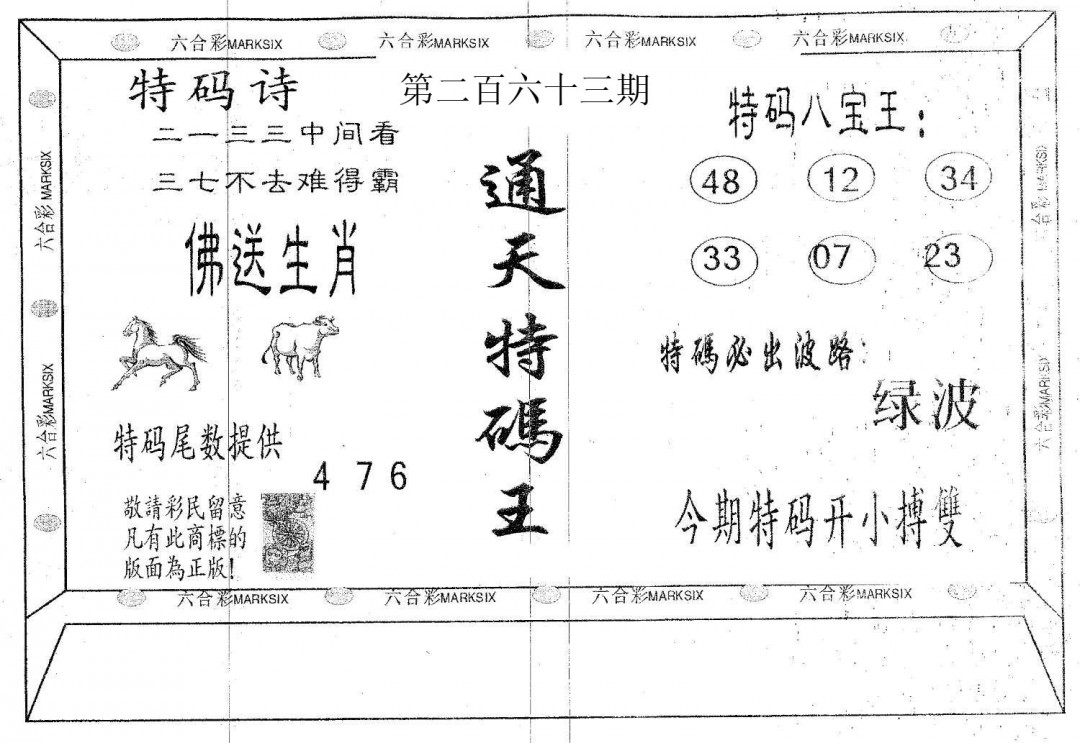 六合彩MARKSIX 六合彩MARKSIX 六合彩MARKSIX 六合彩MARKSIX
第二百六十三期
特码诗
二一三三中间看
三七不去难得霸
佛送生肖
特码尾数提供
4 7 6
敬請彩民留意
凡有此商標的
版面為正版!
通天特碼王
特码八宝王:
48 12 34
33 07 23
特碼必出波路:
绿波
今期特码开小搏雙
六合彩 MARKSIX
六合彩MARKSIX
六合彩 MARKSIX
六合彩MARKSIX
六合彩MARKSIX 六合彩MARKSIX 六合彩MARKSIX 六合彩MARKSIX